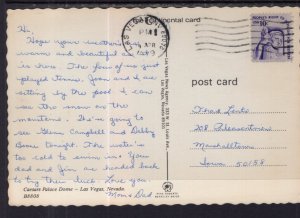 Hi,
Hope your weather is
warm and beautiful as it
is here. The four of us just
played tennis. Joan and I are
sitting by the pool & can
see the snow on the
mountains. We're going to
see Glenn Campbell and Debby
Boone tonight. The water is
too cold to swim in. Your
dad and Jim are headed back
to try their luck. Love you.
Mom & Dad
Caesars Palace Dome — Las Vegas, Nevada
B8808
PM
APR
post card
208 Pleasantview
Marshalltown
Iowa 50158